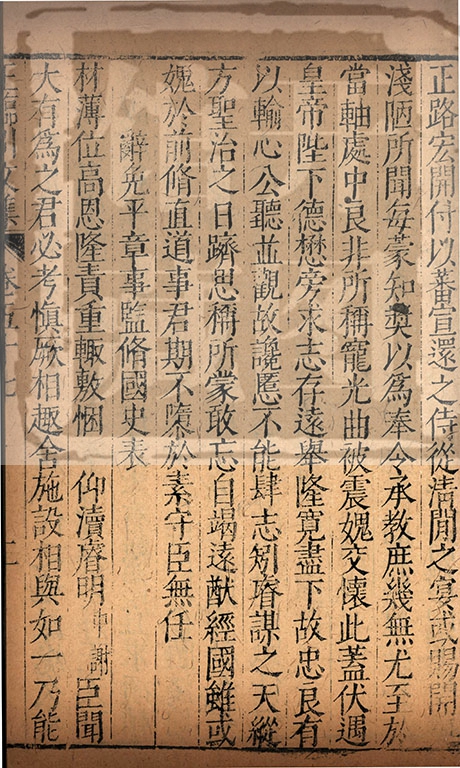 正路宏開付以蕃宣還之侍從清閒之宴或賜開
淺陋所聞每蒙知奬以爲奉令承教庶幾無尤至於
當軸處中良非所稱寵光曲被震媿交懷此蓋伏遇
皇帝陛下德懋旁求志存遠舉隆寬盡下故忠良有
以輸心公聽並觀故讒慝不能肆志矧睿謀之天縱
方聖治之日躋思稱所蒙敢忘自竭遠猷經國雖或
媿於前脩直道事君期不隳於素守臣無任
辭免平章事監脩國史表
材薄位高恩隆責重輒敷悃 仰瀆睿明中謝臣聞
大有爲之君必考愼厥相趣舍施設相與如一乃能